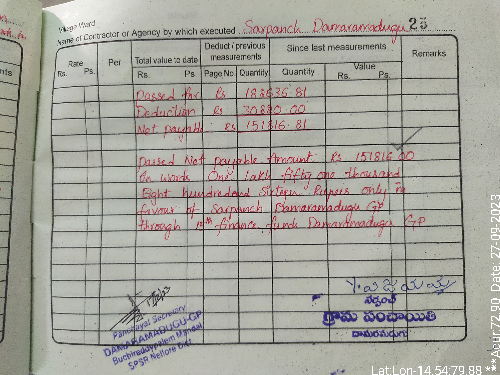 Village Ward
Name of Contractor or Agency by which executed Sarpanch Damaramadugu 25
Rate
Rs. Ps.
Per
Total value to date
Rs. Ps
Deduct / previous measurements
Page No. Quantity
Since last measurements
Quantity
Value
Rs. Ps.
Remarks
Passed for Rs 182636 81
Deduction Rs 30820.00
Not payable Rs 151816.81
Passed Not payable Amount Rs 151816 00
In words One lakh fifty one thousand
Eight hundredend Sixteen Rupees only in
favour of Sarpanch Damaramadugu GP
through 15th finance funds Damaramadugu GP
Panchayat Secretary
DAMARAMADUGU-GP
Buchireddypalem Mandal
SPSR Nellore Dist
సర్పంచ్
గ్రామ పంచాయితి
దామరమడుగు
Lat Lon-14.54,79.88 *** Acur-72.90 Date: 27-09-2023